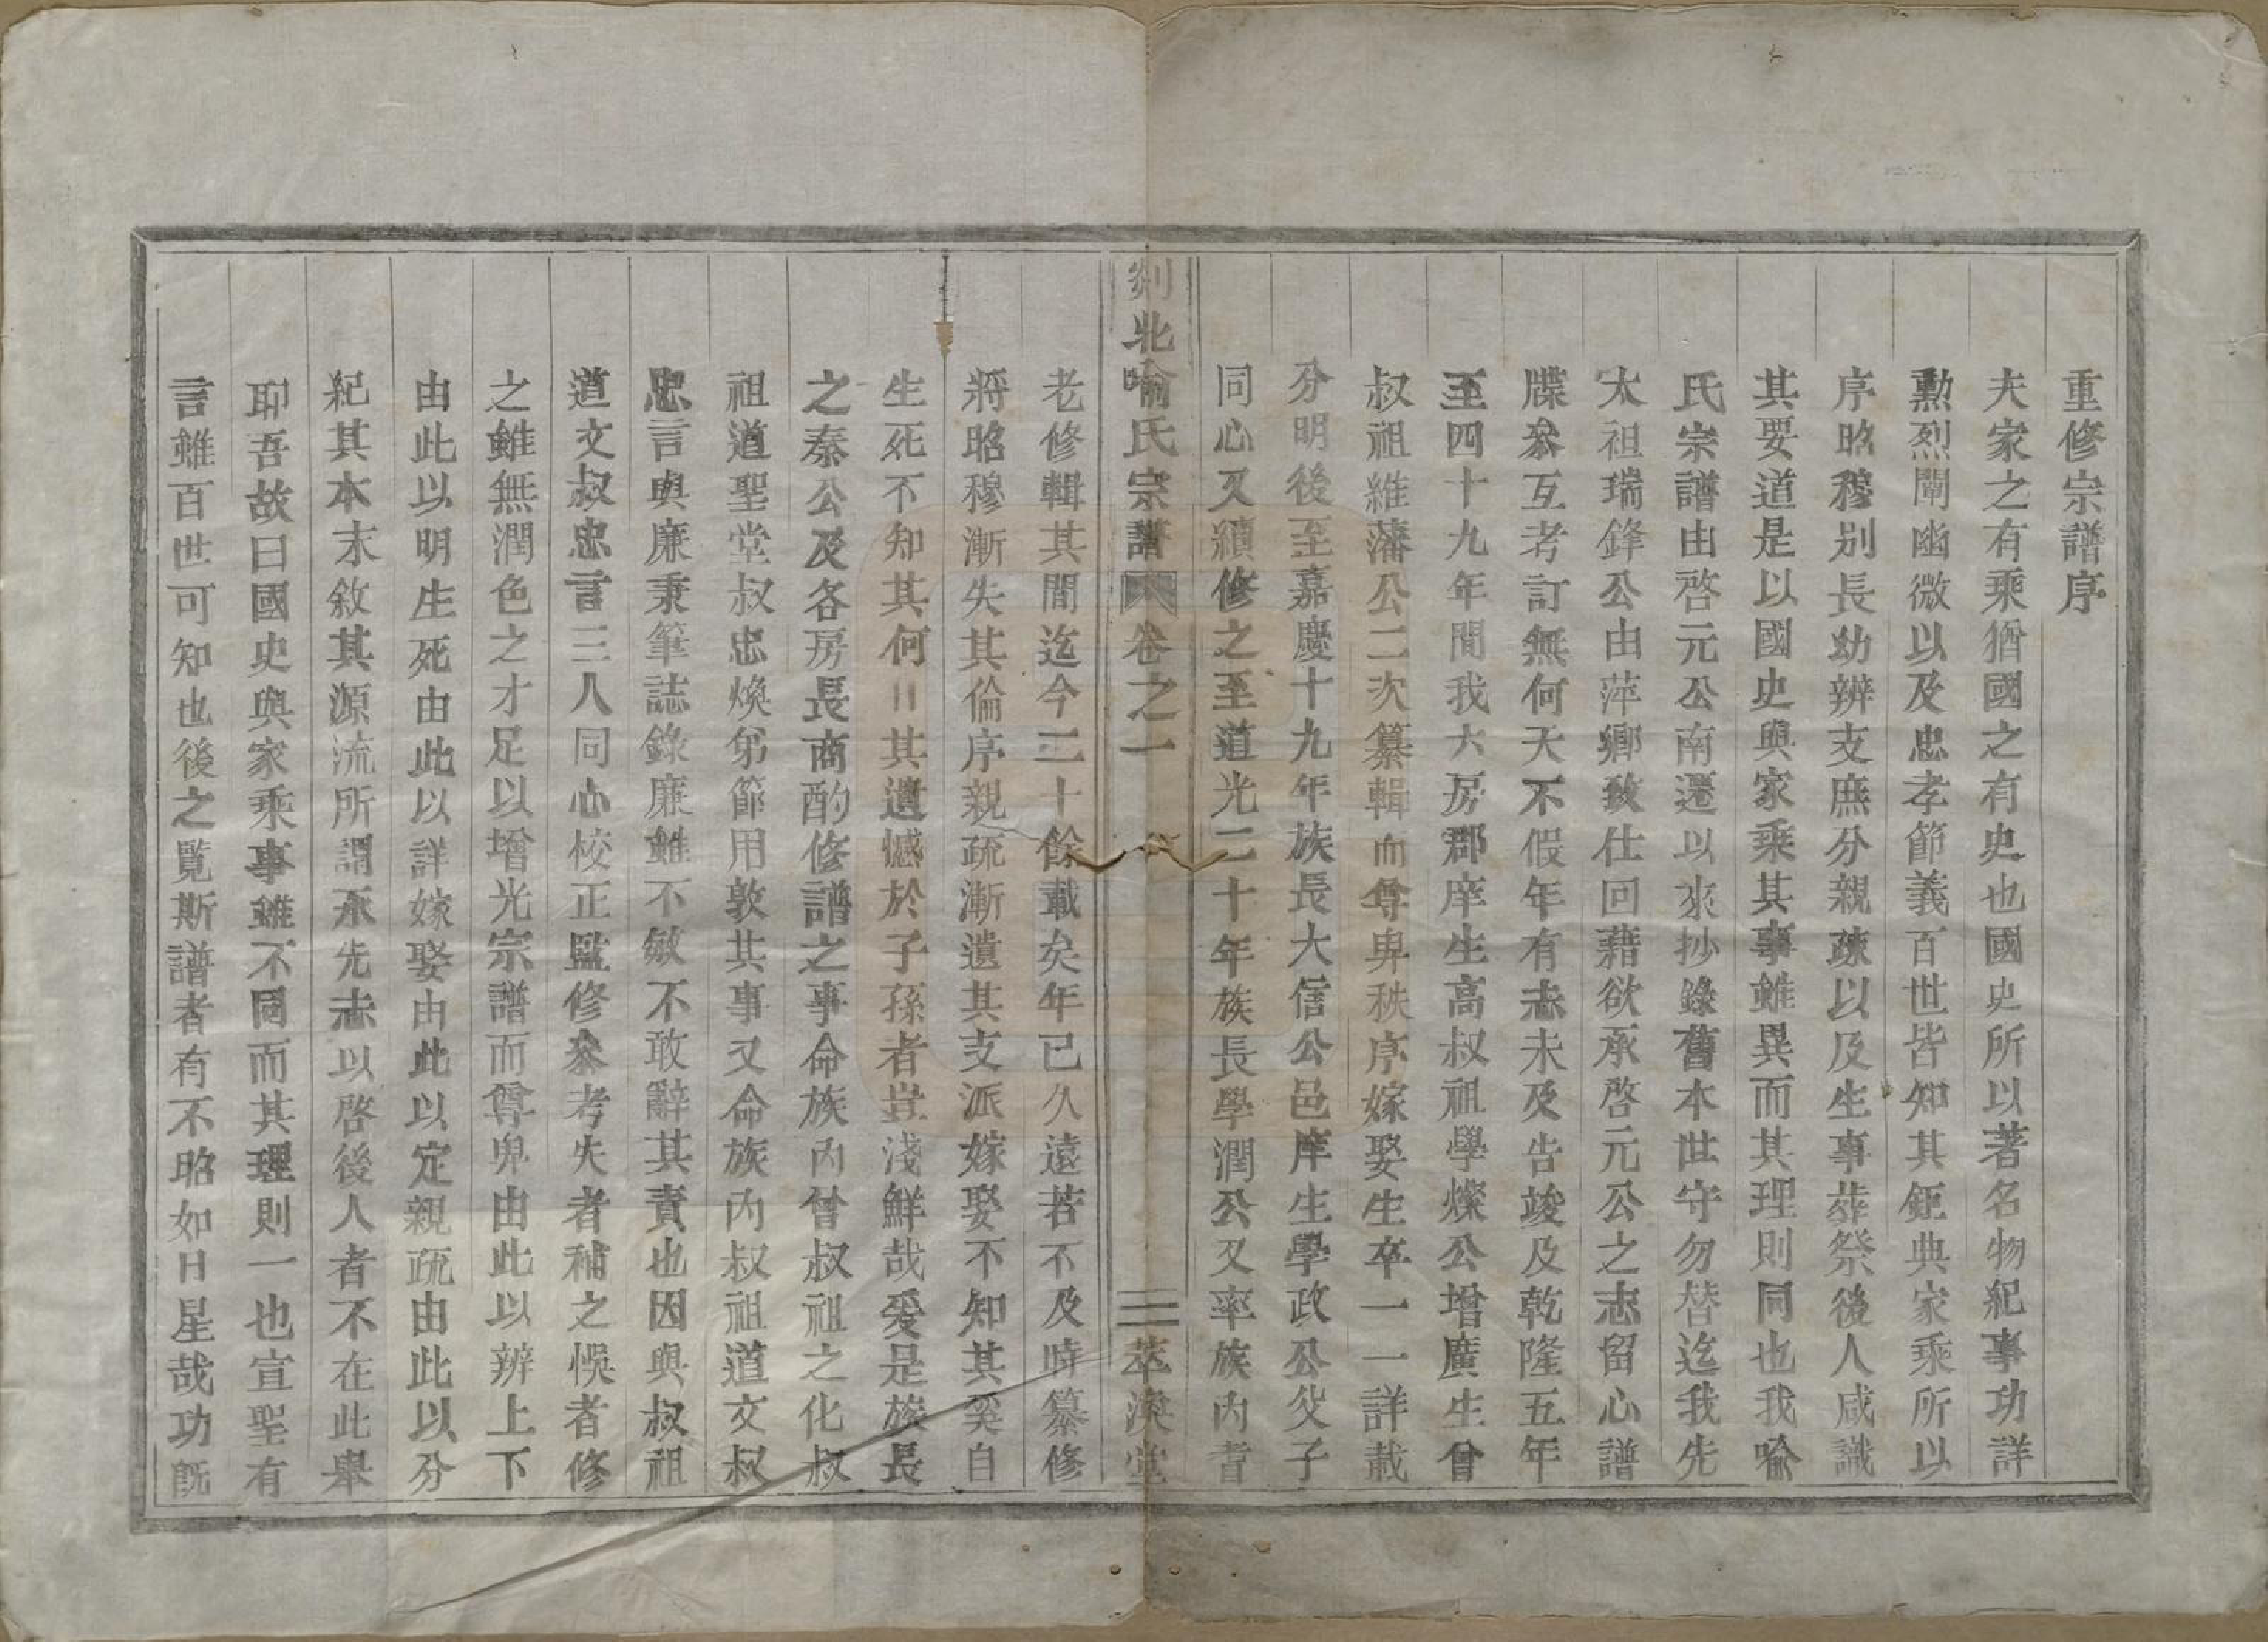 重修宗譜序
夫家之有乘猶國之有史也國史所以著名物紀事功詳
勳烈闡幽微以及忠孝節義百世皆知其鉅典家乘所以
序昭穆别長幼辨支庶分親疎以及生事葬祭後人咸識
其要道是以國史與家乘其事雖異而其理則同也我喻
氏宗譜由啓元公南遷以來抄錄舊本世守勿替迄我先
太祖瑞鋒公由萍鄉致仕回藉欲承啓元公之志留心譜
牒叅互考訂無何天不假年有志未及告竣及乾隆五年
至四十九年間我六房郡庠生高叔祖學燦公增廣生曾
叔祖維藩公二次纂輯而尊卑秩序嫁娶生卒一一詳載
分明後至嘉慶十九年族長大信公邑庠生學政公父子
同心又續修之至道光二十年族長學潤公又率族内耆
剡北喻氏宗譜 卷之一 三 萃渙堂
老修輯其間迄今二十餘載矣年已久遠若不及時纂修
將昭穆漸失其倫序親疏漸遺其支派嫁娶不知其奚自
生死不知其何日其遺憾於子孫者豈淺鮮哉爰是族長
之秦公及各房長商酌修譜之事命族内曾叔祖之化叔
祖道聖堂叔忠煥弟節用敦其事又命族内叔祖道文叔
忠言與廉秉筆誌錄廉雖不敏不敢辭其責也因與叔祖
道文叔忠言言三人同心校正監修叅考失者補之悞者修
之雖無潤色之才足以增光宗譜而尊卑由此以辨上下
由此以明生死由此以詳嫁娶由此以定親疏由此以分
紀其本末敘其源流所謂承先志以啓後人者不在此舉
耶吾故曰國史與家乘事雖不同而其理則一也宣聖有
言雖百世可知也後之覽斯譜者有不昭如日星哉功既